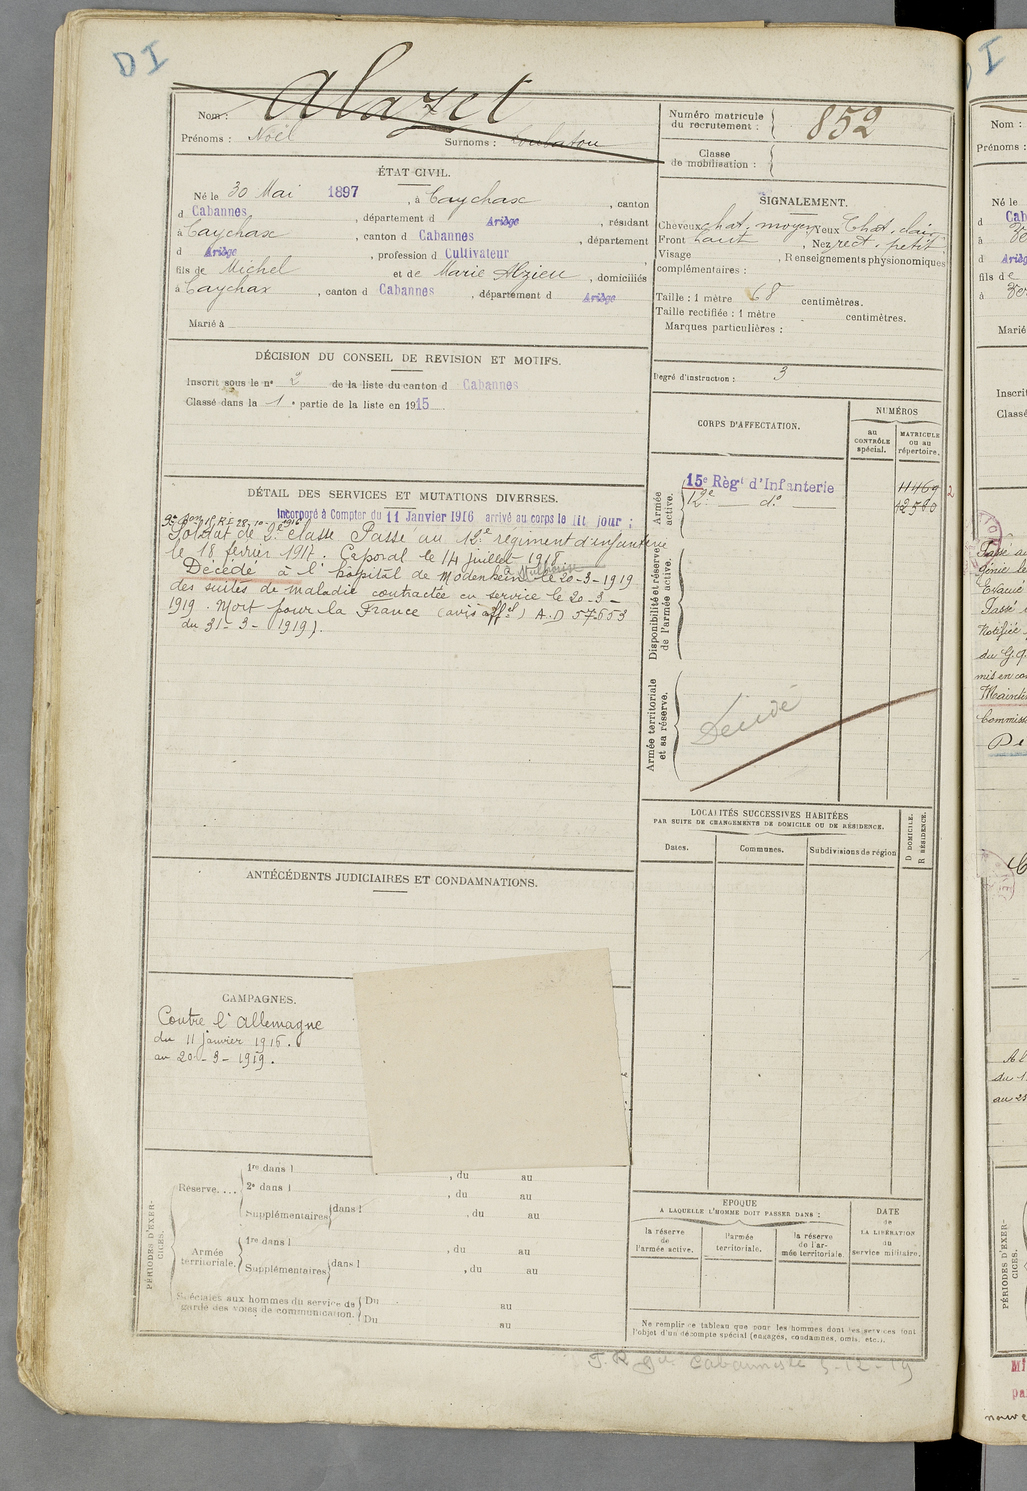 DI
Nom : Alazet
Prénoms : Noël Surnoms : Loubatou
Numéro matricule du recrutement : 852
Classe de mobilisation :
ÉTAT CIVIL.
Né le 30 Mai 1897, à Caychax, canton
d Cabannes, département d Ariège, résidant
à Caychax, canton d Cabannes, département
d Ariège, profession d Cultivateur
fils de Michel et de Marie, domiciliés
à Caychax, canton d Cabannes, département d Ariège
Marié à
SIGNALEMENT.
Cheveux chat. moyen Yeux Chat. clair
Front haut, Nez rect. petit
Visage, Renseignements physionomiques
complémentaires :
Taille : 1 mètre 68 centimètres.
Taille rectifiée : 1 mètre centimètres.
Marques particulières :
Degré d'instruction : 3
DÉCISION DU CONSEIL DE REVISION ET MOTIFS.
Inscrit sous le n° 2 de la liste du canton d Cabannes
Classé dans la 1e partie de la liste en 1915
CORPS D'AFFECTATION.
NUMÉROS
au CONTRÔLE spécial.
MATRICULE ou au répertoire.
Armée active.
15e Régt d'Infanterie 11469
12e do 12580
2
Disponibilité et réserve de l'armée active.
Armée territoriale et sa réserve.
Décédé
DÉTAIL DES SERVICES ET MUTATIONS DIVERSES.
Incorporé à Compter du 11 Janvier 1916 arrivé au corps le dit jour ;
Soldat de 2e classe Passé au 12e régiment d'infanterie
le 18 février 1917. Caporal le 14 juillet 1918
Décédé à l'hôpital de Modenheim à Mulhouse le 20-3-1919
des suites de maladie contractée en service le 20-3-
1919. Mort pour la France (avis offel) A.D 57653
du 31-3-1919).
LOCALITÉS SUCCESSIVES HABITÉES
PAR SUITE DE CHANGEMENTS DE DOMICILE OU DE RÉSIDENCE.
Dates. Communes. Subdivisions de région
D DOMICILE.
R RÉSIDENCE.
ANTÉCÉDENTS JUDICIAIRES ET CONDAMNATIONS.
CAMPAGNES.
Contre l'Allemagne
du 11 janvier 1916.
au 20-3-1919.
PÉRIODES D'EXERCICES.
Réserve....
1re dans l , du au
2e dans l , du au
Supplémentaires dans l , du au
Armée territoriale.
1re dans l , du au
Supplémentaires dans l , du au
Spéciales aux hommes du service de garde des voies de communication.
Du au
Du au
EPOQUE
A LAQUELLE L'HOMME DOIT PASSER DANS :
la réserve de l'armée active.
l'armée territoriale.
la réserve de l'armée territoriale.
DATE de LA LIBÉRATION du service militaire.
Ne remplir ce tableau que pour les hommes dont les services font
l'objet d'un décompte spécial (engagés, condamnés, omis, etc.).
5-12-19